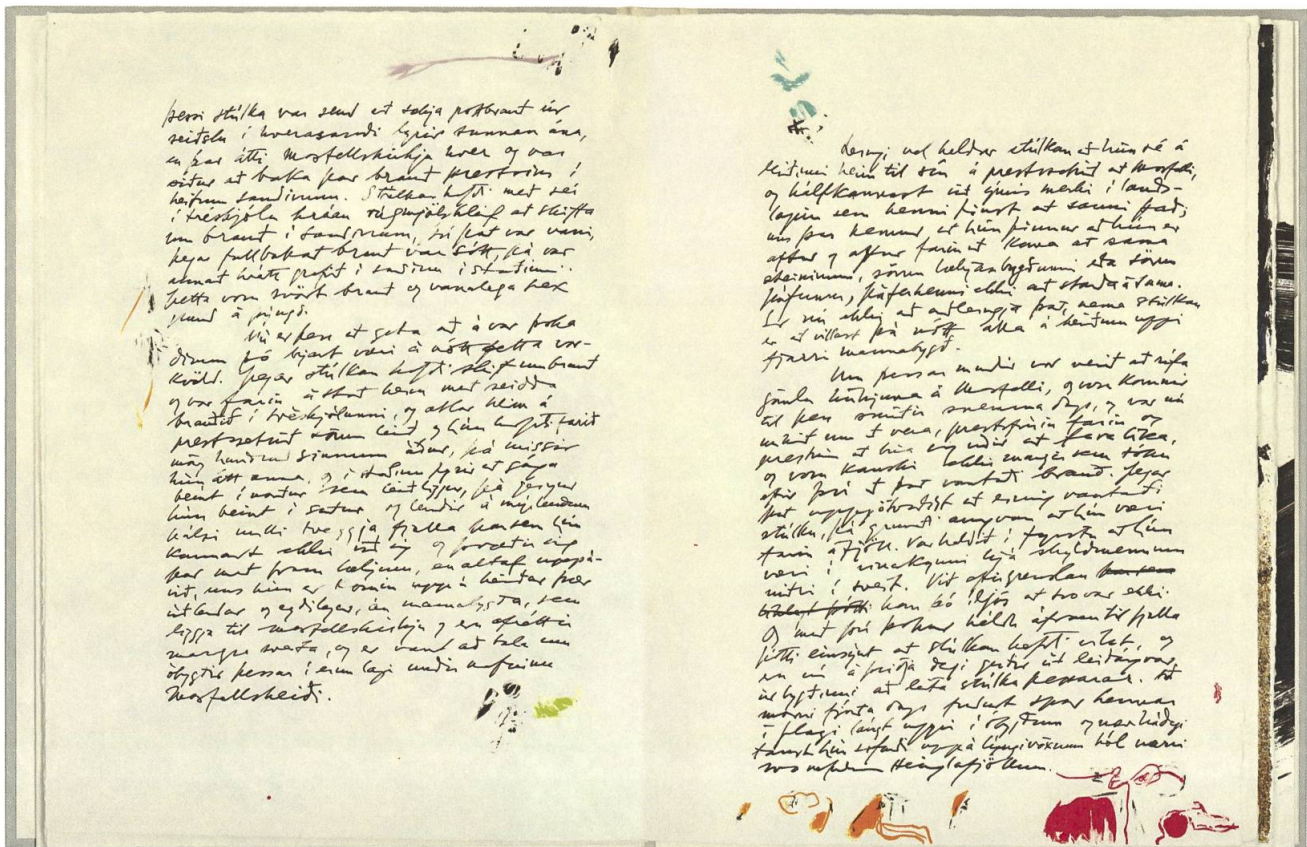 Þessi stúlka var send að sækja pottbrauð úr
seiðslu í hverasandi fyrir sunnan ána,
en þar átti Mosfellskirkja hver og var
siður að baka þar brauð prestsins í
heitum sandinum. Stúlkan hafði með sér
í tréskjólu hráan rúgmjölshleif að skifta
um brauð í sandinum, því það var vani,
þegar fullbakað brauð var sótt, þá var
annað hrátt grafið í sandinn í staðinn.
Þetta vom svört brauð og vanalega sex
pund á þýngd.
Nú er þess að geta að á var þoka
dimm þó bjart væri á nótt þetta vor-
kvöld. Þegar stúlkan hafði skift um brauð
og var farin áleiðis heim með seidda
brauðið í tréskjólunni, og ætlar heim á
prestssetrið sömu leið og hún hafði farið
mörg hundruð sinnum áður, þá missir
hún átt anna, og í staðinn fyrir að gánga
beint í norður sem leið liggur, þá geingur
hún beint í austur og lendir á mýlendum
hálsi milli tveggja fjalla þar sem hún
kannast ekki við sig og forvitin sig
þar með fram læknum, en altaf uppá-
við, uns hún er komin uppá heiðar þær
víðlendar og eyðilegar, án mannabygða, sem
liggja til Mosfellskirkju og em afréttir
margra sveita, og er vant að tala um
óbygðir þessar í einu lagi undir nafninu
Mosfellsheiði.
Leingi vel heldur stúlkan að hún sé á
leiðinni heim til sín á prestssetrið at Mosfelli,
og hálfkannast við ýmis merki í lands-
lagin sem henni finst að sanni það;
uns þar kemur at hún finnur að hún er
aftur og aftur farin at koma at sama
steininum, sömu lækjarbugðunni eða sömu
þúfunni, þúfa henni ekki at standa á sama.
Er nú ekki að orðlengja það, nema stúlkan
er að villast þá nótt alla á heiðum uppi
fjarri mannabygð.
Um þessar mundir var verið at rífa
gömlu kirkjuna á Mosfelli, og vom komnir
til þess smiðir snemma dags, og var nú
mikið um að vera, prestsfrúin farin og
presturinn at búa sig undir at fara líka,
og vom kanski ekki margir sem tóku
eftir því að þar vantaði brauð. Þegar
það uppgötvaðist at einnig vantaði
stúlku, þá grunaði aungvan at hún væri
farin á fjöll. Var haldið í fyrstu at hún
væri í vinakynni hjá skyldmennum
niðri í sveit. Við eftirgrenslan
kom þó í ljós at svo var ekki.
Og með því þokur héldu áfram til fjalla
þótti einsýnt at stúlkan hefði vilst, og
em nú á þriðja degi gerðir út leitarmenn
úr bygðinni at leita stúlku þessarar. At
morni fjórða dags fundust spor hennar
í flagi lángt uppi í óbygðum og nær hádegi
fanst hún sofandi uppá lyngivöxnum hól nærri
svonefndum Henglafjöllum.